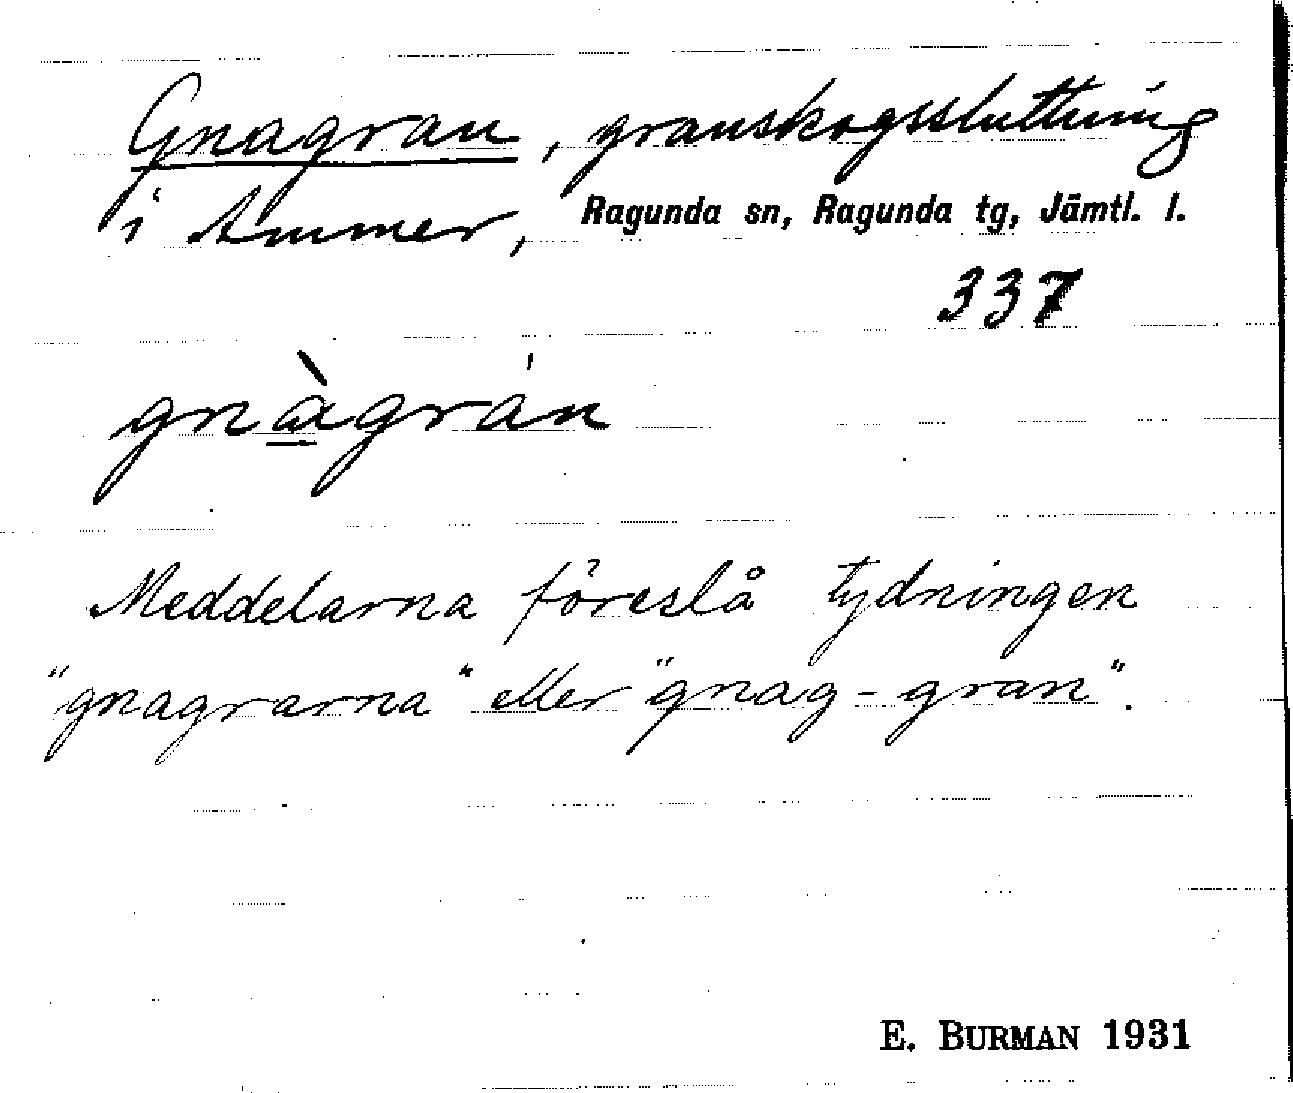 Gnagran, granskogssluttning
i Ammer, Ragunda sn, Ragunda tg, Jämtl. l.
337
gnàgrán
Meddelarna föreslå tydningen
"gnagrarna" eller "gnag-gran".
E. BURMAN 1931